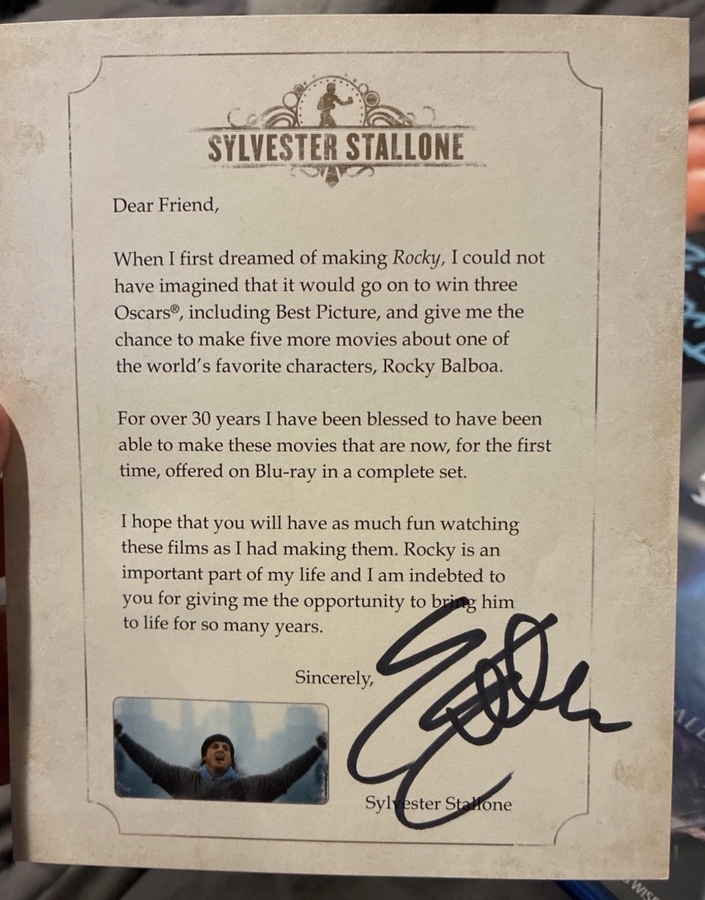 SYLVESTER STALLONE
Dear Friend,
When I first dreamed of making Rocky, I could not
have imagined that it would go on to win three
Oscars®, including Best Picture, and give me the
chance to make five more movies about one of
the world's favorite characters, Rocky Balboa.
For over 30 years I have been blessed to have been
able to make these movies that are now, for the first
time, offered on Blu-ray in a complete set.
I hope that you will have as much fun watching
these films as I had making them. Rocky is an
important part of my life and I am indebted to
you for giving me the opportunity to bring him
to life for so many years.
Sincerely,
Sylvester Stallone